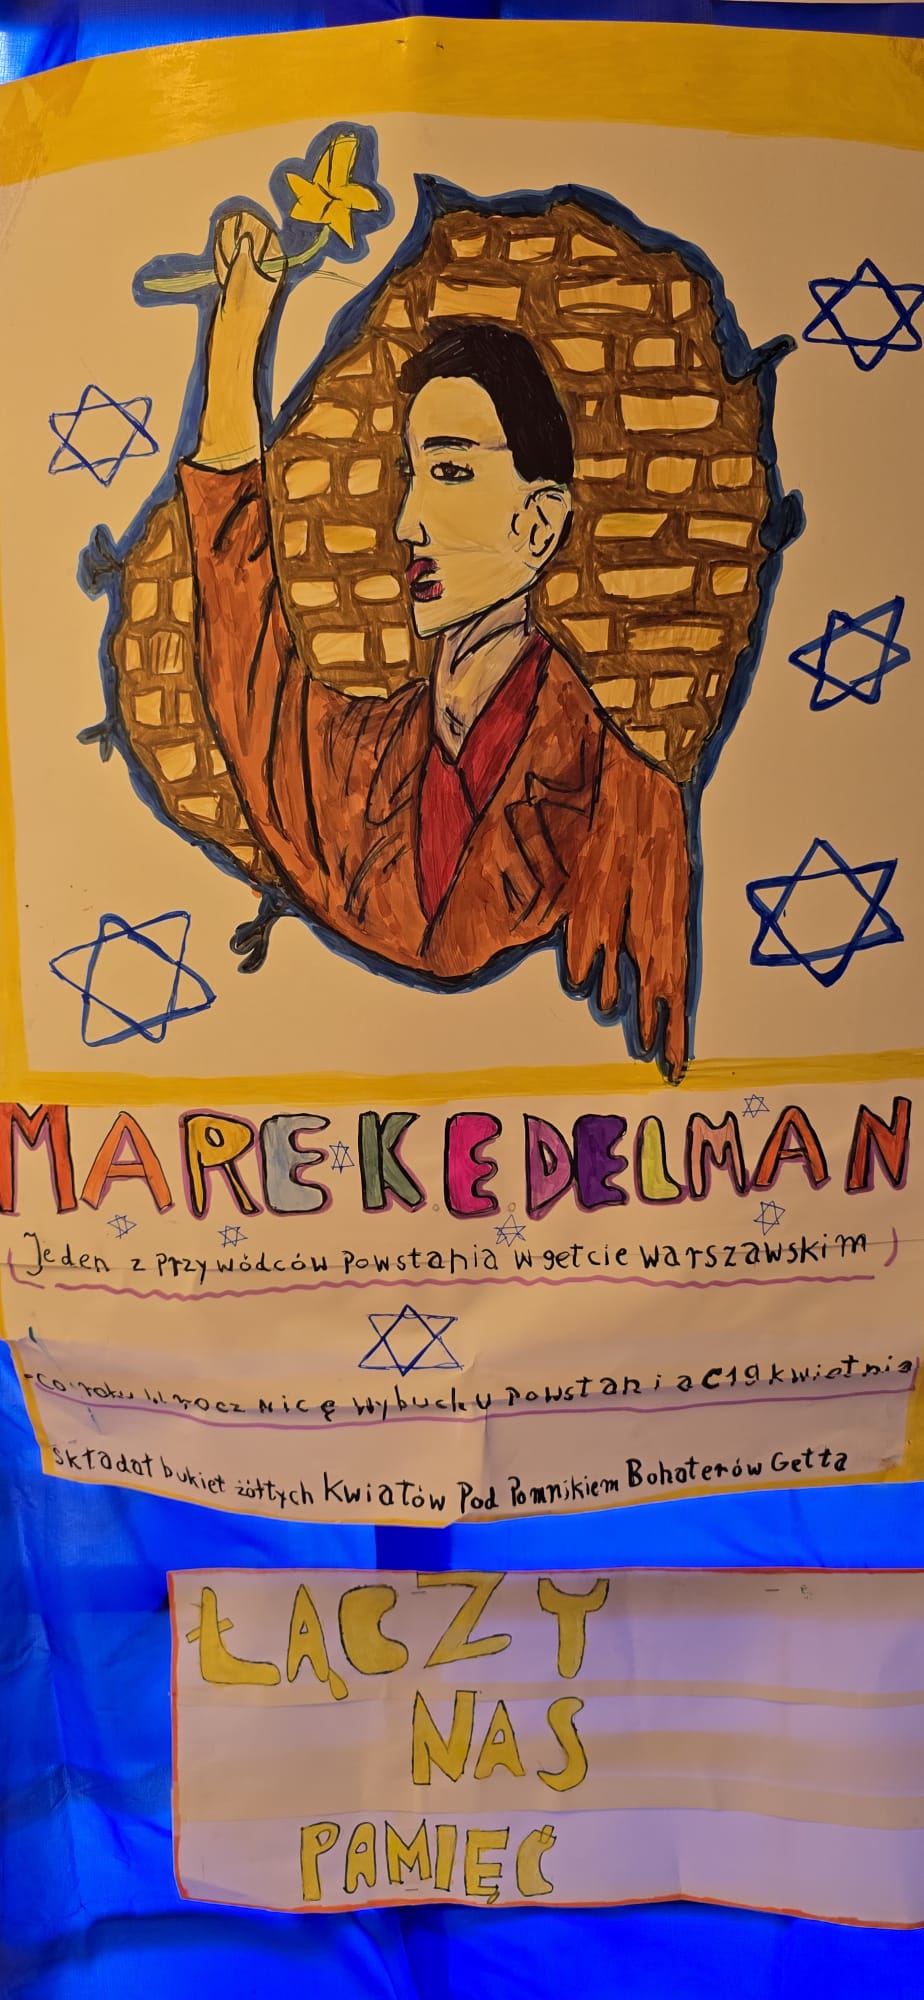 MAREK EDELMAN
(Jeden z przywódców Powstania w getcie warszawskim)
-co roku w rocznicę wybuchu Powstania (19 kwietnia
składał bukiet żółtych kwiatów pod Pomnikiem Bohaterów Getta
ŁĄCZY
NAS
PAMIĘĆ